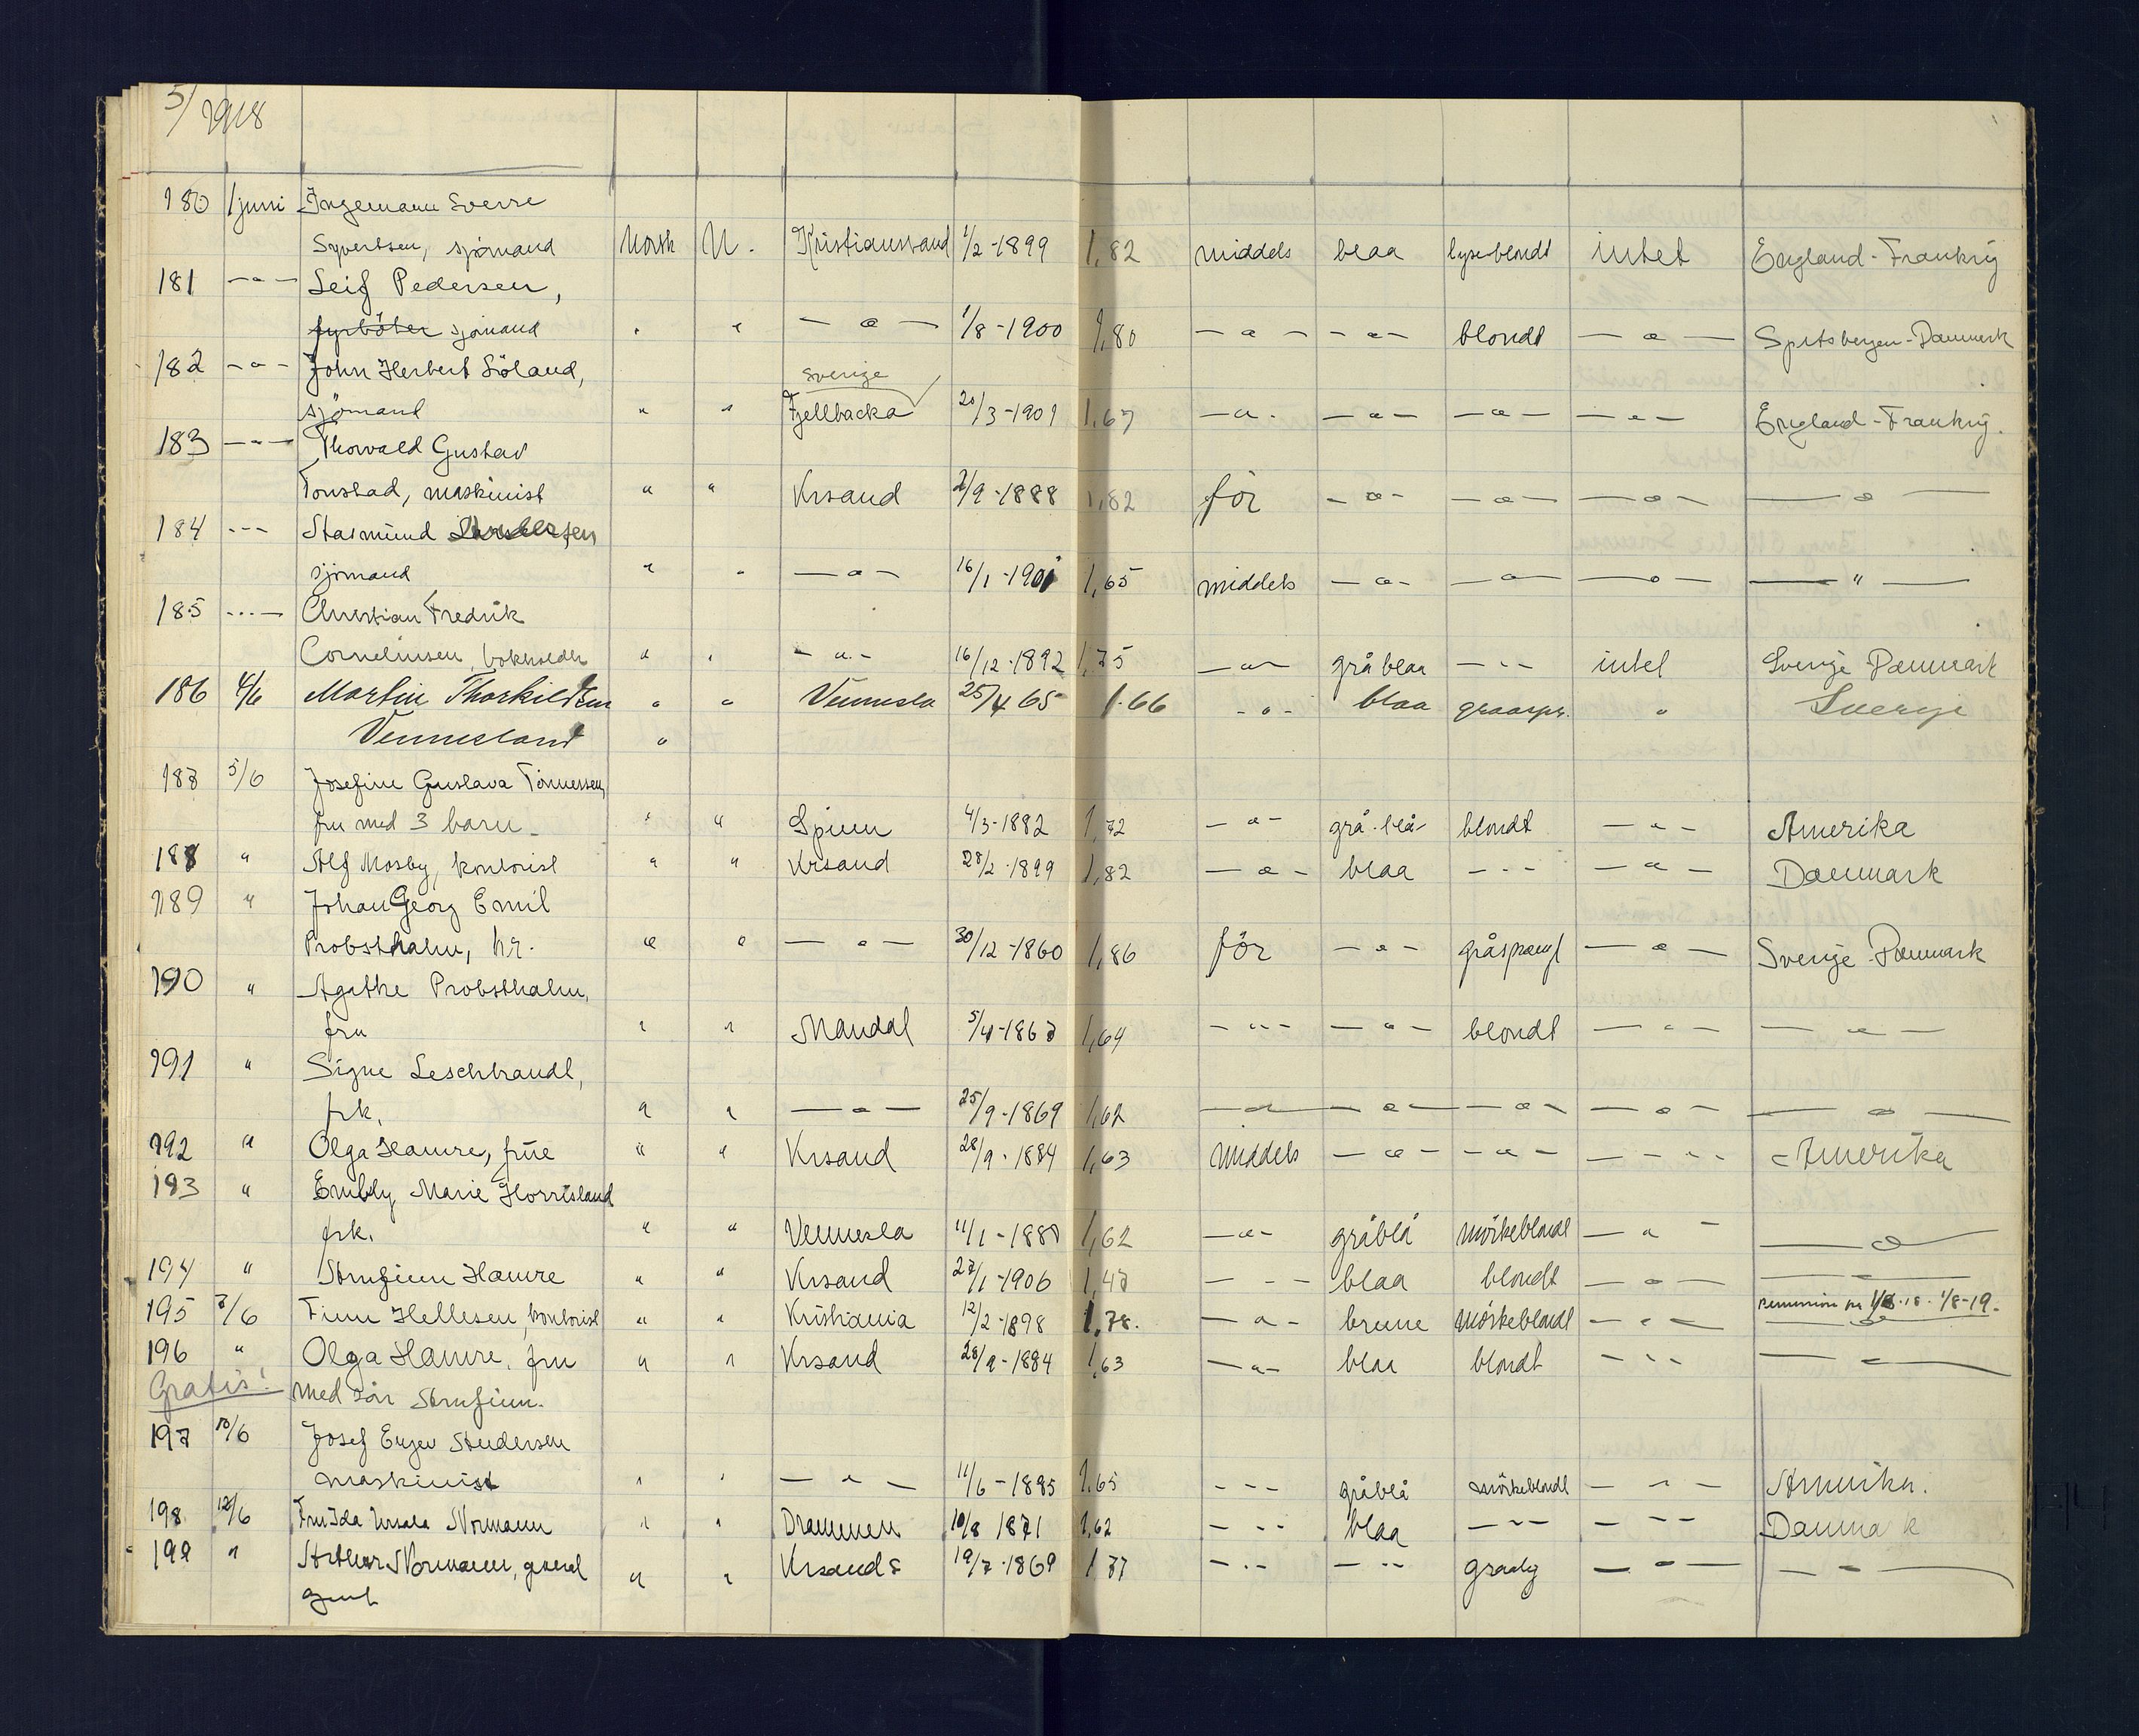 5/ 1918
180 1 juni Ingemann Sverre
Syvertsen, sjömand Norsk N. Kristianssand 1/2-1899 1,82 middels blaa lyseblondt intet England-Frankrig
181 —"— Leif Pedersen,
fyrböter sjömand " " —"— 1/8-1900 1,80 —"— —"— blondt —"— Spitsbergen-Danmark
182 —"— John Herbert Söland, Sverige
sjömand " " Fjellbacka 20/3-1901 1,67 —"— —"— —"— —"— England-Frankrig.
183 —"— Thorvald Gustav
Tonstad, maskinist " " Krsand 2/9-1888 1,82 för —"— —"— —"— —"—
184 —"— Stasmund
sjömand " " —"— 16/1-1901 1,65 middels —"— —"— —"— —"—
185 —"— Christian Fredrik
Corneliusen, bokholder " " —"— 16/12-1892 1,75 —"— gråblaa —"— intet Sverige Danmark
186 4/6 Martin Thorkildsen " " Vennesla 25/4 65 1.66 —"— blaa graaspr. " Sverige
Vennesland "
187 5/6 Josefine Gustava Tönnessen,
fru med 3 barn " " Spind 4/3-1882 1,72 —"— grå-blå blondt —"— Amerika
188 " Alf Mosby, kontorist " " Krsand 28/2-1899 1,82 —"— blaa —"— —"— Danmark
189 " Johan Georg Emil
Probsthahn, hr. " " —"— 30/12-1860 1,86 för —"— gråsprængt —"— Sverige-Danmark
190 " Agathe Probsthahn,
fru " " Mandal 5/4-1867 1,64 —"— —"— blondt —"— —"—
191 " Signe Leschbrandt,
frk. " " —"— 25/9-1869 1,62 —"— —"— —"— —"— —"—
192 " Olga Hamre, frue " " Krsand 28/9-1884 1,63 middels —"— —"— —"— Amerika
193 " Embly Marie Horrisland
frk. " " Vennesla 11/1-1880 1,62 —"— gråblå mörkeblondt —"— —"—
194 " Strufinn Hamre " " Krsand 27/1-1906 1,47 —"— blaa blondt —"— —"—
195 7/6 Finn Hellesen, kontorist " " Kristiania 12/2-1898 1,78. —"— brune mörkeblondt —"— Permission fra 1/8-18-1/8-19. —"—
196 " Olga Hamre, fru " " Krsand 28/9-1884 1,63 —"— blaa blondt —"— —"—
Gratis! med sön Strufinn.
197 10/6 Josef Enger Andersen
maskinist " " —"— 11/6-1895 1,65 —"— gråblå mörkeblondt —"— Amerika.
198 12/6 Fru Ida Normann " " Drammen 10/8 1871 1,62 —"— blaa —"— —"— Danmark
199 " Arthur Normann, general " " Krsand S 19/7-1869 1,77 —"— —"— graalig —"— —"—